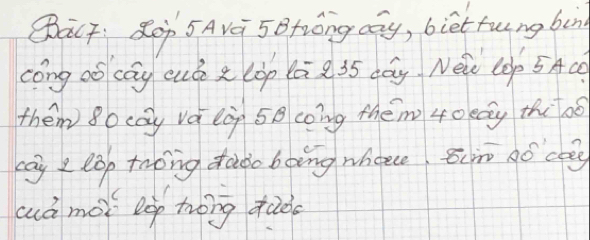 Bài 7: Lớp 5A và 5B trồng cây, biết trung bìn
cộng số cây của 2 lớp là 235 cây. Nếu lớp 5A có
thêm 80 cây và lớp 5B cộng thêm 40 cây thì số
cây 2 lớp trồng được bằng nhau. Tìm số cây
của mỗi lớp trồng được